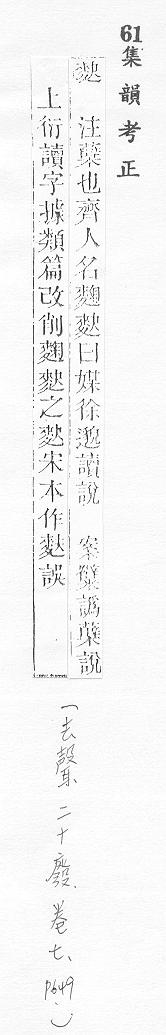 61集韻考正
䴬　注糵也齊人名麴䴬曰媒徐邈讀說　案糪譌糵說
上衍讀字據類篇改削麴䴬之䴬宋本作䴬誤
(去聲 二十廢 卷七、P649、)